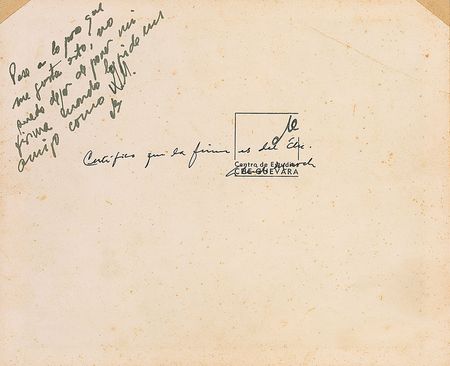 Pese a lo poco que
me gusta esto, no
puedo dejar de poner mi
firma cuando la pide un
amigo como
Che
Certifico que la firma es del Che.
Centro de Estudios
CHE GUEVARA